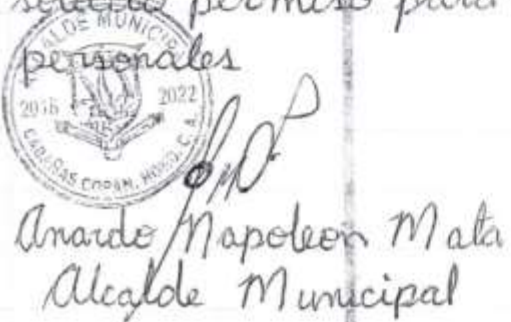 solicito permiso para
personales
ALCALDE MUNICIPAL
2018 2022
CABAÑAS COPAN, HOND. C. A.
Anardo Napoleon Mata
Alcalde Municipal